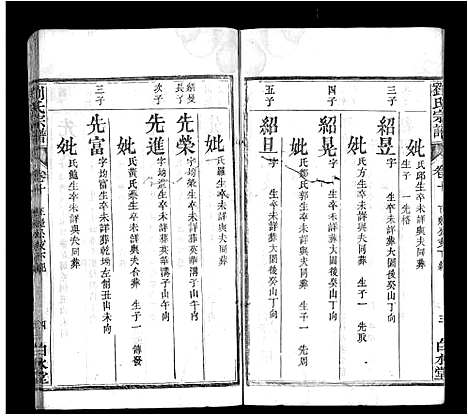 劉氏宗譜
卷十
三
白水堂
妣
氏邱生卒未詳與夫同葬
生子一 先格
三子
紹昱
字 生卒未詳葬大園後癸山丁向
妣
氏方生卒未詳與夫同葬 生子一 先取
四子
紹晃
字 生卒未詳葬大園後癸山丁向
妣
氏鄒氏郭生卒未詳與夫同葬 生子一 先周
五子
紹旦
字 生卒未詳葬大園後癸山丁向
妣
氏羅生卒未詳與夫同葬
紹旻
長子
先榮
字 生卒未詳葬英華溝子山午向
次子
先進
字均 生卒未詳葬英華溝子山午向
妣
氏黃氏蔡生卒未詳與夫合葬 生子一
三子
先富
字均富生卒未詳葬乾塆左側丑山未向
妣
氏鮑生卒未詳與夫同葬
劉氏宗譜
卷十
四
白水堂